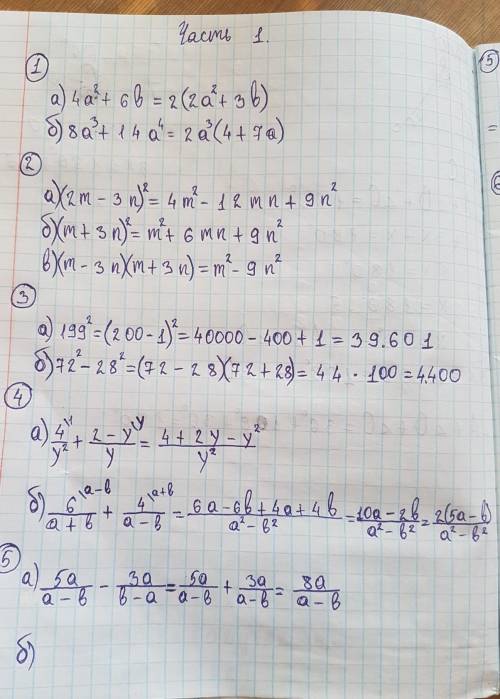 Часть 1.
1
а) 4a² + 6b = 2(2a² + 3b)
б) 8a³ + 14a⁴ = 2a³(4 + 7a)
2
а) (2m - 3n)² = 4m² - 12mn + 9n²
б) (m + 3n)² = m² + 6mn + 9n²
в) (m - 3n)(m + 3n) = m² - 9n²
3
а) 199² = (200 - 1)² = 40000 - 400 + 1 = 39.601
б) 72² - 28² = (72 - 28)(72 + 28) = 44 · 100 = 4.400
4
а) 4/y² + 2 - y\y/y = 4 + 2y - y²/y²
б) 6\a-b/a + b + 4\a+b/a - b = 6a - 6b + 4a + 4b/a² - b² = 10a - 2b/a² - b² = 2(5a - b)/a² - b²
5
а) 5a/a - b - 3a/b - a = 5a/a - b + 3a/a - b = 8a/a - b
б)
5
=